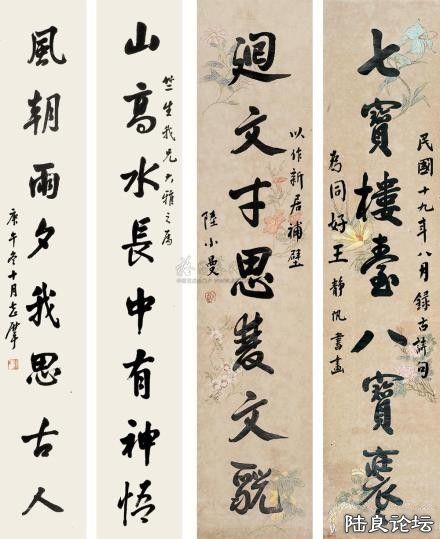 民國十九年八月錄古詩句
七寶樓臺八寶
為同好王靜帆書畫
以作新居補壁
廻文才思文
陸小曼
竺生我兄大雅之屬
山高水長中有神悟
風朝雨夕我思古人
庚午冬十月志摩
陆良论坛